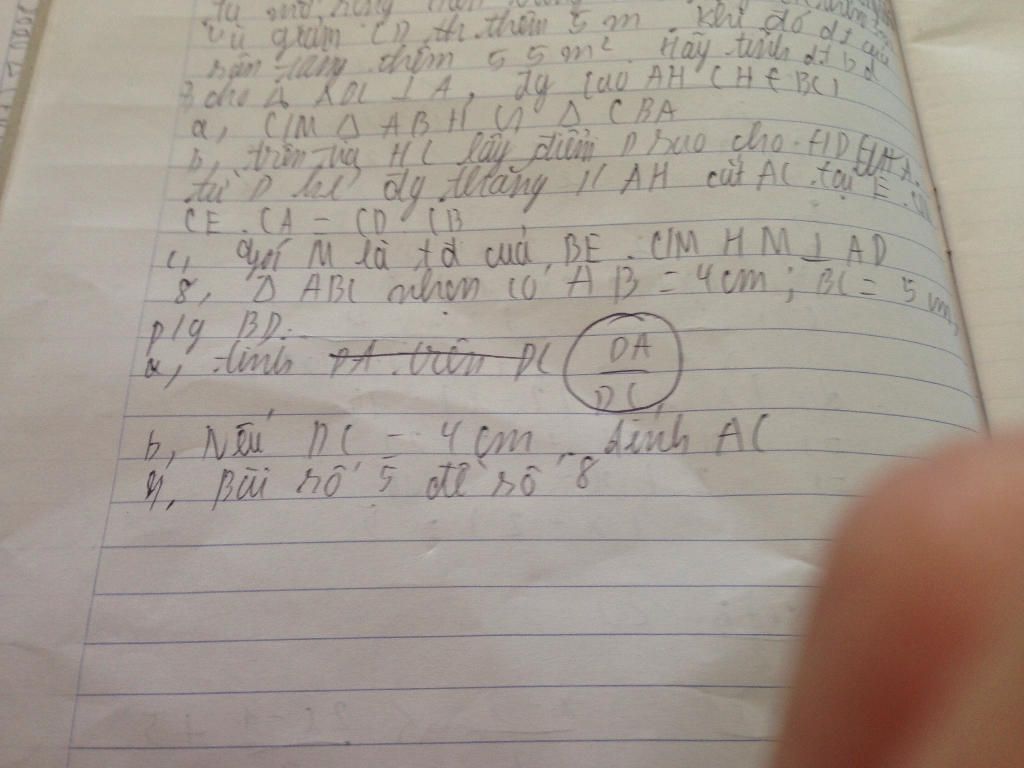 vụ giảm CD đi thêm 5 m. khi đó dt
tăng thêm 55 m². Hãy tính dt bđ
cho Δ ABC ⊥ A, đg cao AH (H ∈ BC)
a, C/M Δ ABH ∽ Δ CBA
b, trên tia HC lấy điểm D sao cho HD = HA.
từ D kẻ đg thẳng // AH cắt AC tại E. CM
CE . CA = CD . CB
c, gọi M là tđ của BE. C/M HM ⊥ AD
8, Δ ABC nhọn có AB = 4cm; BC = 5 cm,
p/g BD.
a, tính DA trên DC DA/DC
b, Nếu DC = 4 cm tính AC
9, Bài số 5 đề số 8